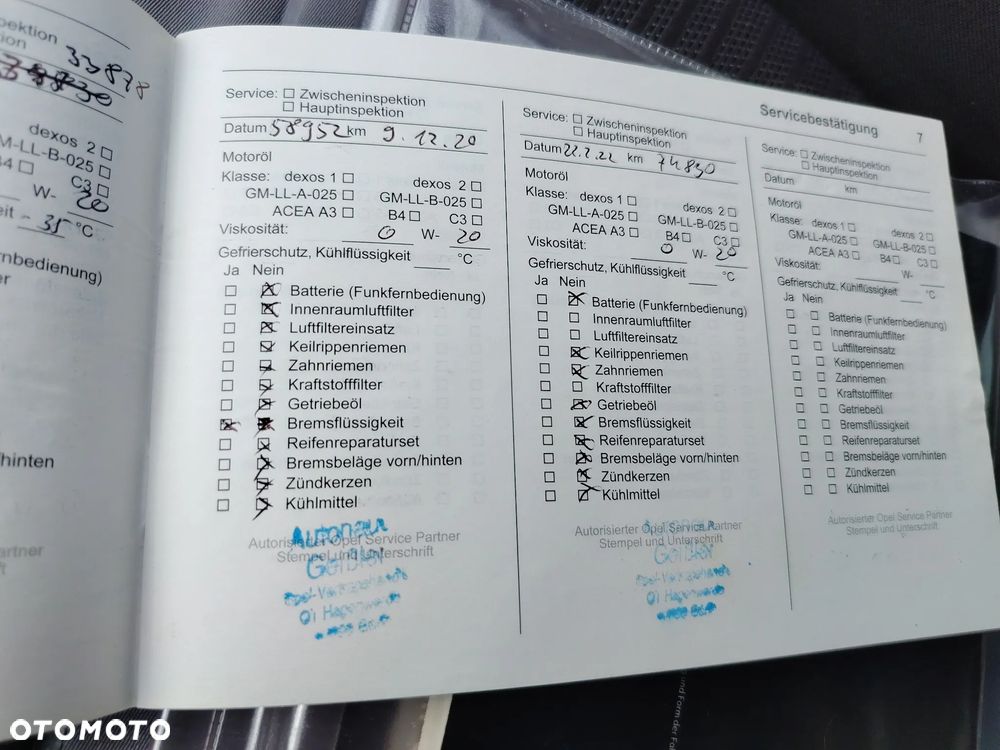 pektion
ion 33878
39830
dexos 2
M-LL-B-025
B4 C3
W- 20
eit - 35 °C
rnbedienung)
/hinten
artner
ft
Servicebestätigung 7
Service: Zwischeninspektion
Hauptinspektion
Datum 58952 km 9.12.20
Motoröl
Klasse: dexos 1 dexos 2
GM-LL-A-025 GM-LL-B-025
ACEA A3 B4 C3
Viskosität: 0 W- 20
Gefrierschutz, Kühlflüssigkeit °C
Ja Nein
Batterie (Funkfernbedienung)
Innenraumluftfilter
Luftfiltereinsatz
Keilrippenriemen
Zahnriemen
Kraftstofffilter
Getriebeöl
Bremsflüssigkeit
Reifenreparaturset
Bremsbeläge vorn/hinten
Zündkerzen
Kühlmittel
Autorisierter Opel Service Partner
Stempel und Unterschrift
Service: Zwischeninspektion
Hauptinspektion
Datum 22.2.22 km 74830
Motoröl
Klasse: dexos 1 dexos 2
GM-LL-A-025 GM-LL-B-025
ACEA A3 B4 C3
Viskosität: 0 W- 20
Gefrierschutz, Kühlflüssigkeit °C
Ja Nein
Batterie (Funkfernbedienung)
Innenraumluftfilter
Luftfiltereinsatz
Keilrippenriemen
Zahnriemen
Kraftstofffilter
Getriebeöl
Bremsflüssigkeit
Reifenreparaturset
Bremsbeläge vorn/hinten
Zündkerzen
Kühlmittel
Autorisierter Opel Service Partner
Stempel und Unterschrift
Service: Zwischeninspektion
Hauptinspektion
Datum km
Motoröl
Klasse: dexos 1 dexos 2
GM-LL-A-025 GM-LL-B-025
ACEA A3 B4 C3
Viskosität: W-
Gefrierschutz, Kühlflüssigkeit °C
Ja Nein
Batterie (Funkfernbedienung)
Innenraumluftfilter
Luftfiltereinsatz
Keilrippenriemen
Zahnriemen
Kraftstofffilter
Getriebeöl
Bremsflüssigkeit
Reifenreparaturset
Bremsbeläge vorn/hinten
Zündkerzen
Kühlmittel
Autorisierter Opel Service Partner
Stempel und Unterschrift
und Form der
OTOMOTO